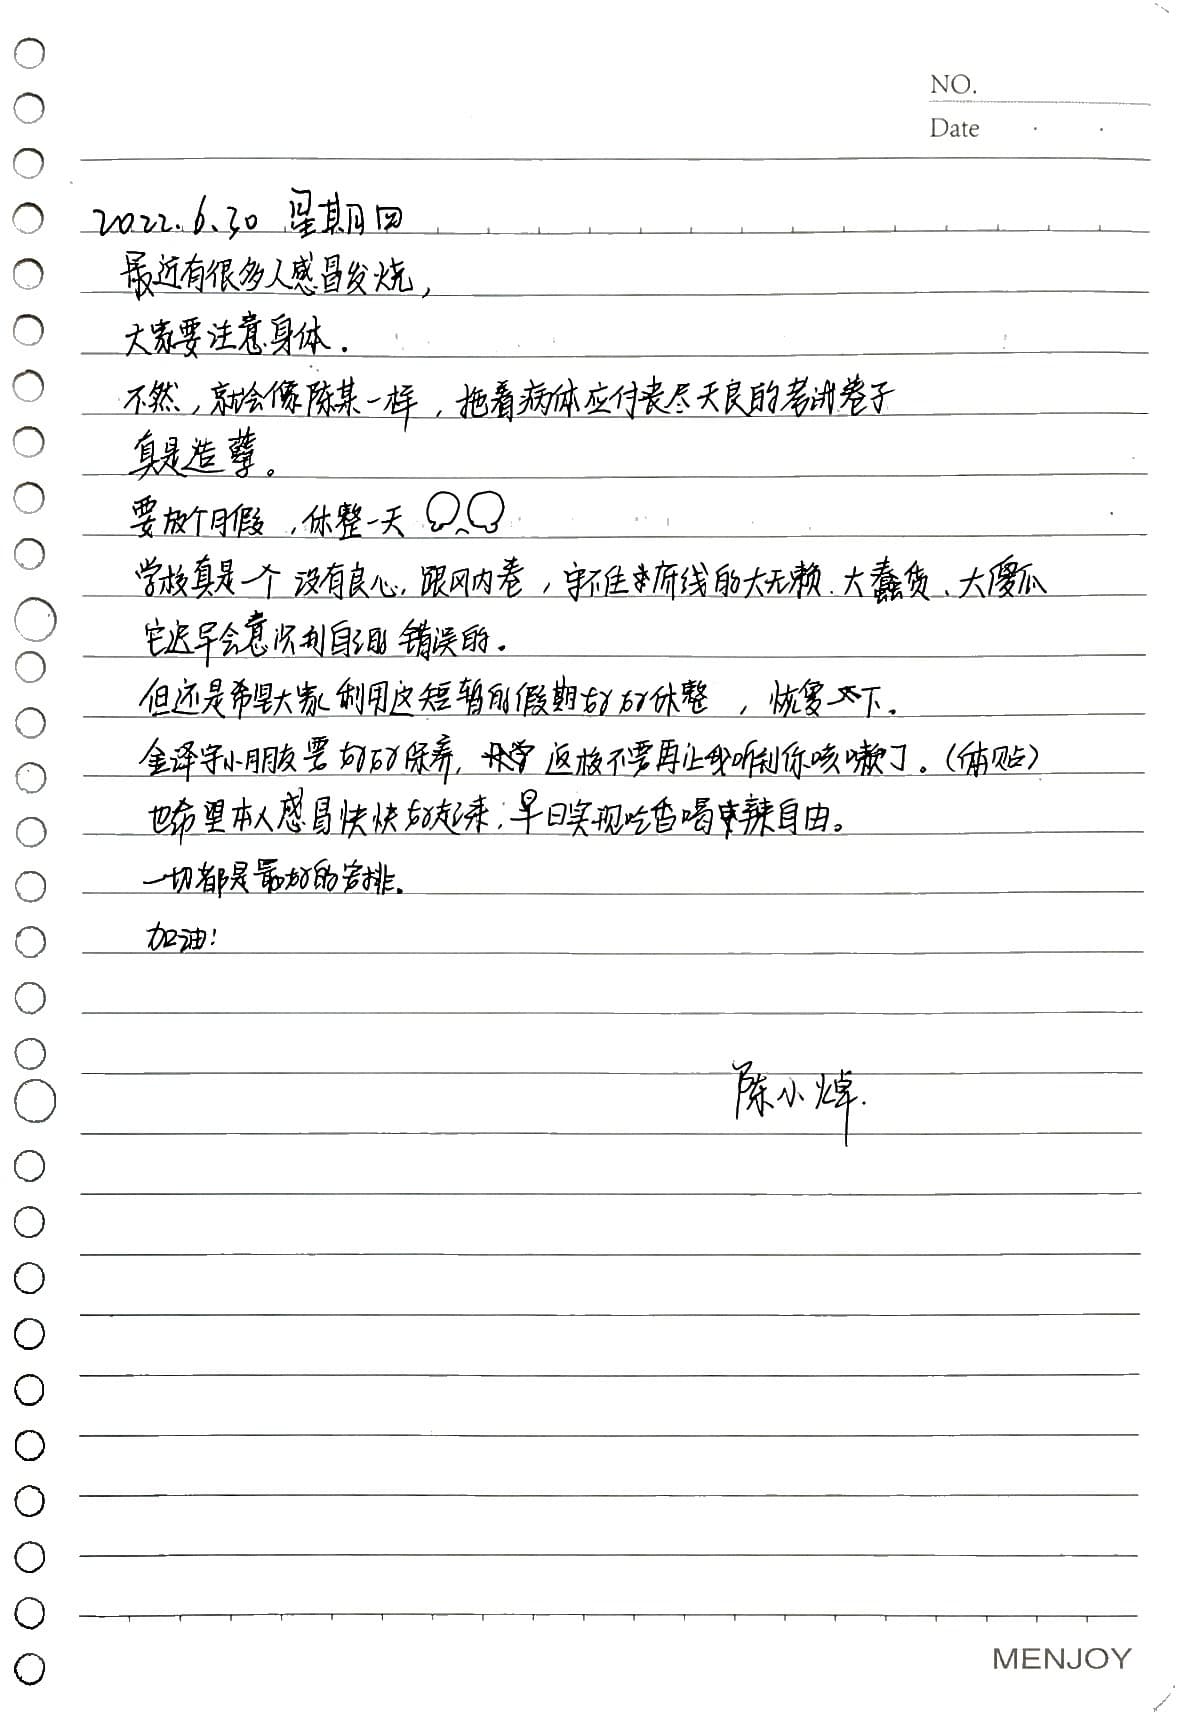 NO.
Date
2022.6.30 星期四
最近有很多人感冒发烧,
大家要注意身体.
不然,就会像陈某一样,拖着病体应付丧尽天良的考试卷子
真是造孽。
要放个月假,休整一天
学校真是一个没有良心,跟风内卷,守不住本府线的大无赖、大蠢货、大傻瓜
它迟早会意识到自己的错误的.
但还是希望大家利用这短暂的假期好好休整,恢复一下.
金泽宇小朋友要好好保养,返校不要再让我听到你咳嗽了。(体贴)
也希望本人感冒快快好起来,早日实现吃香喝辣自由。
一切都是最好的安排.
加油!
陈小焯.
MENJOY